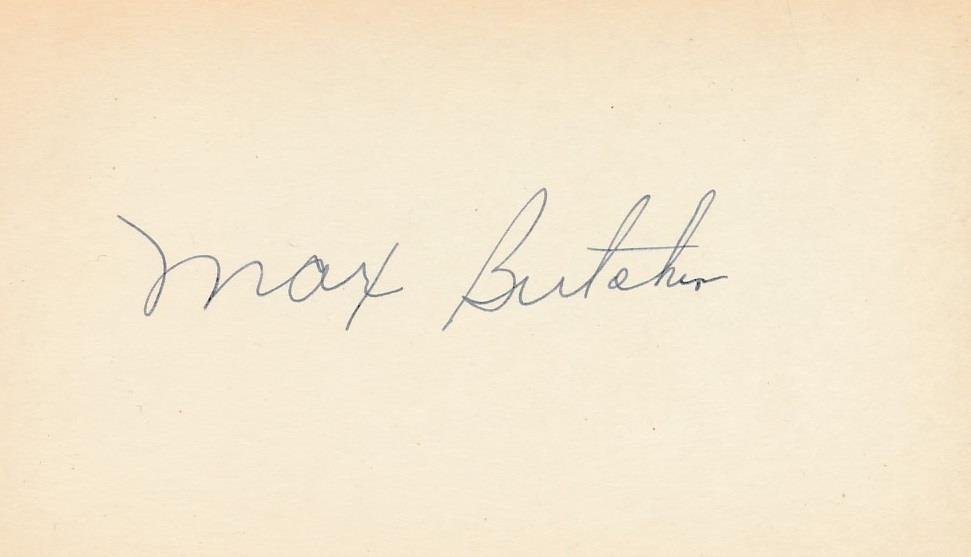 Max Butcher